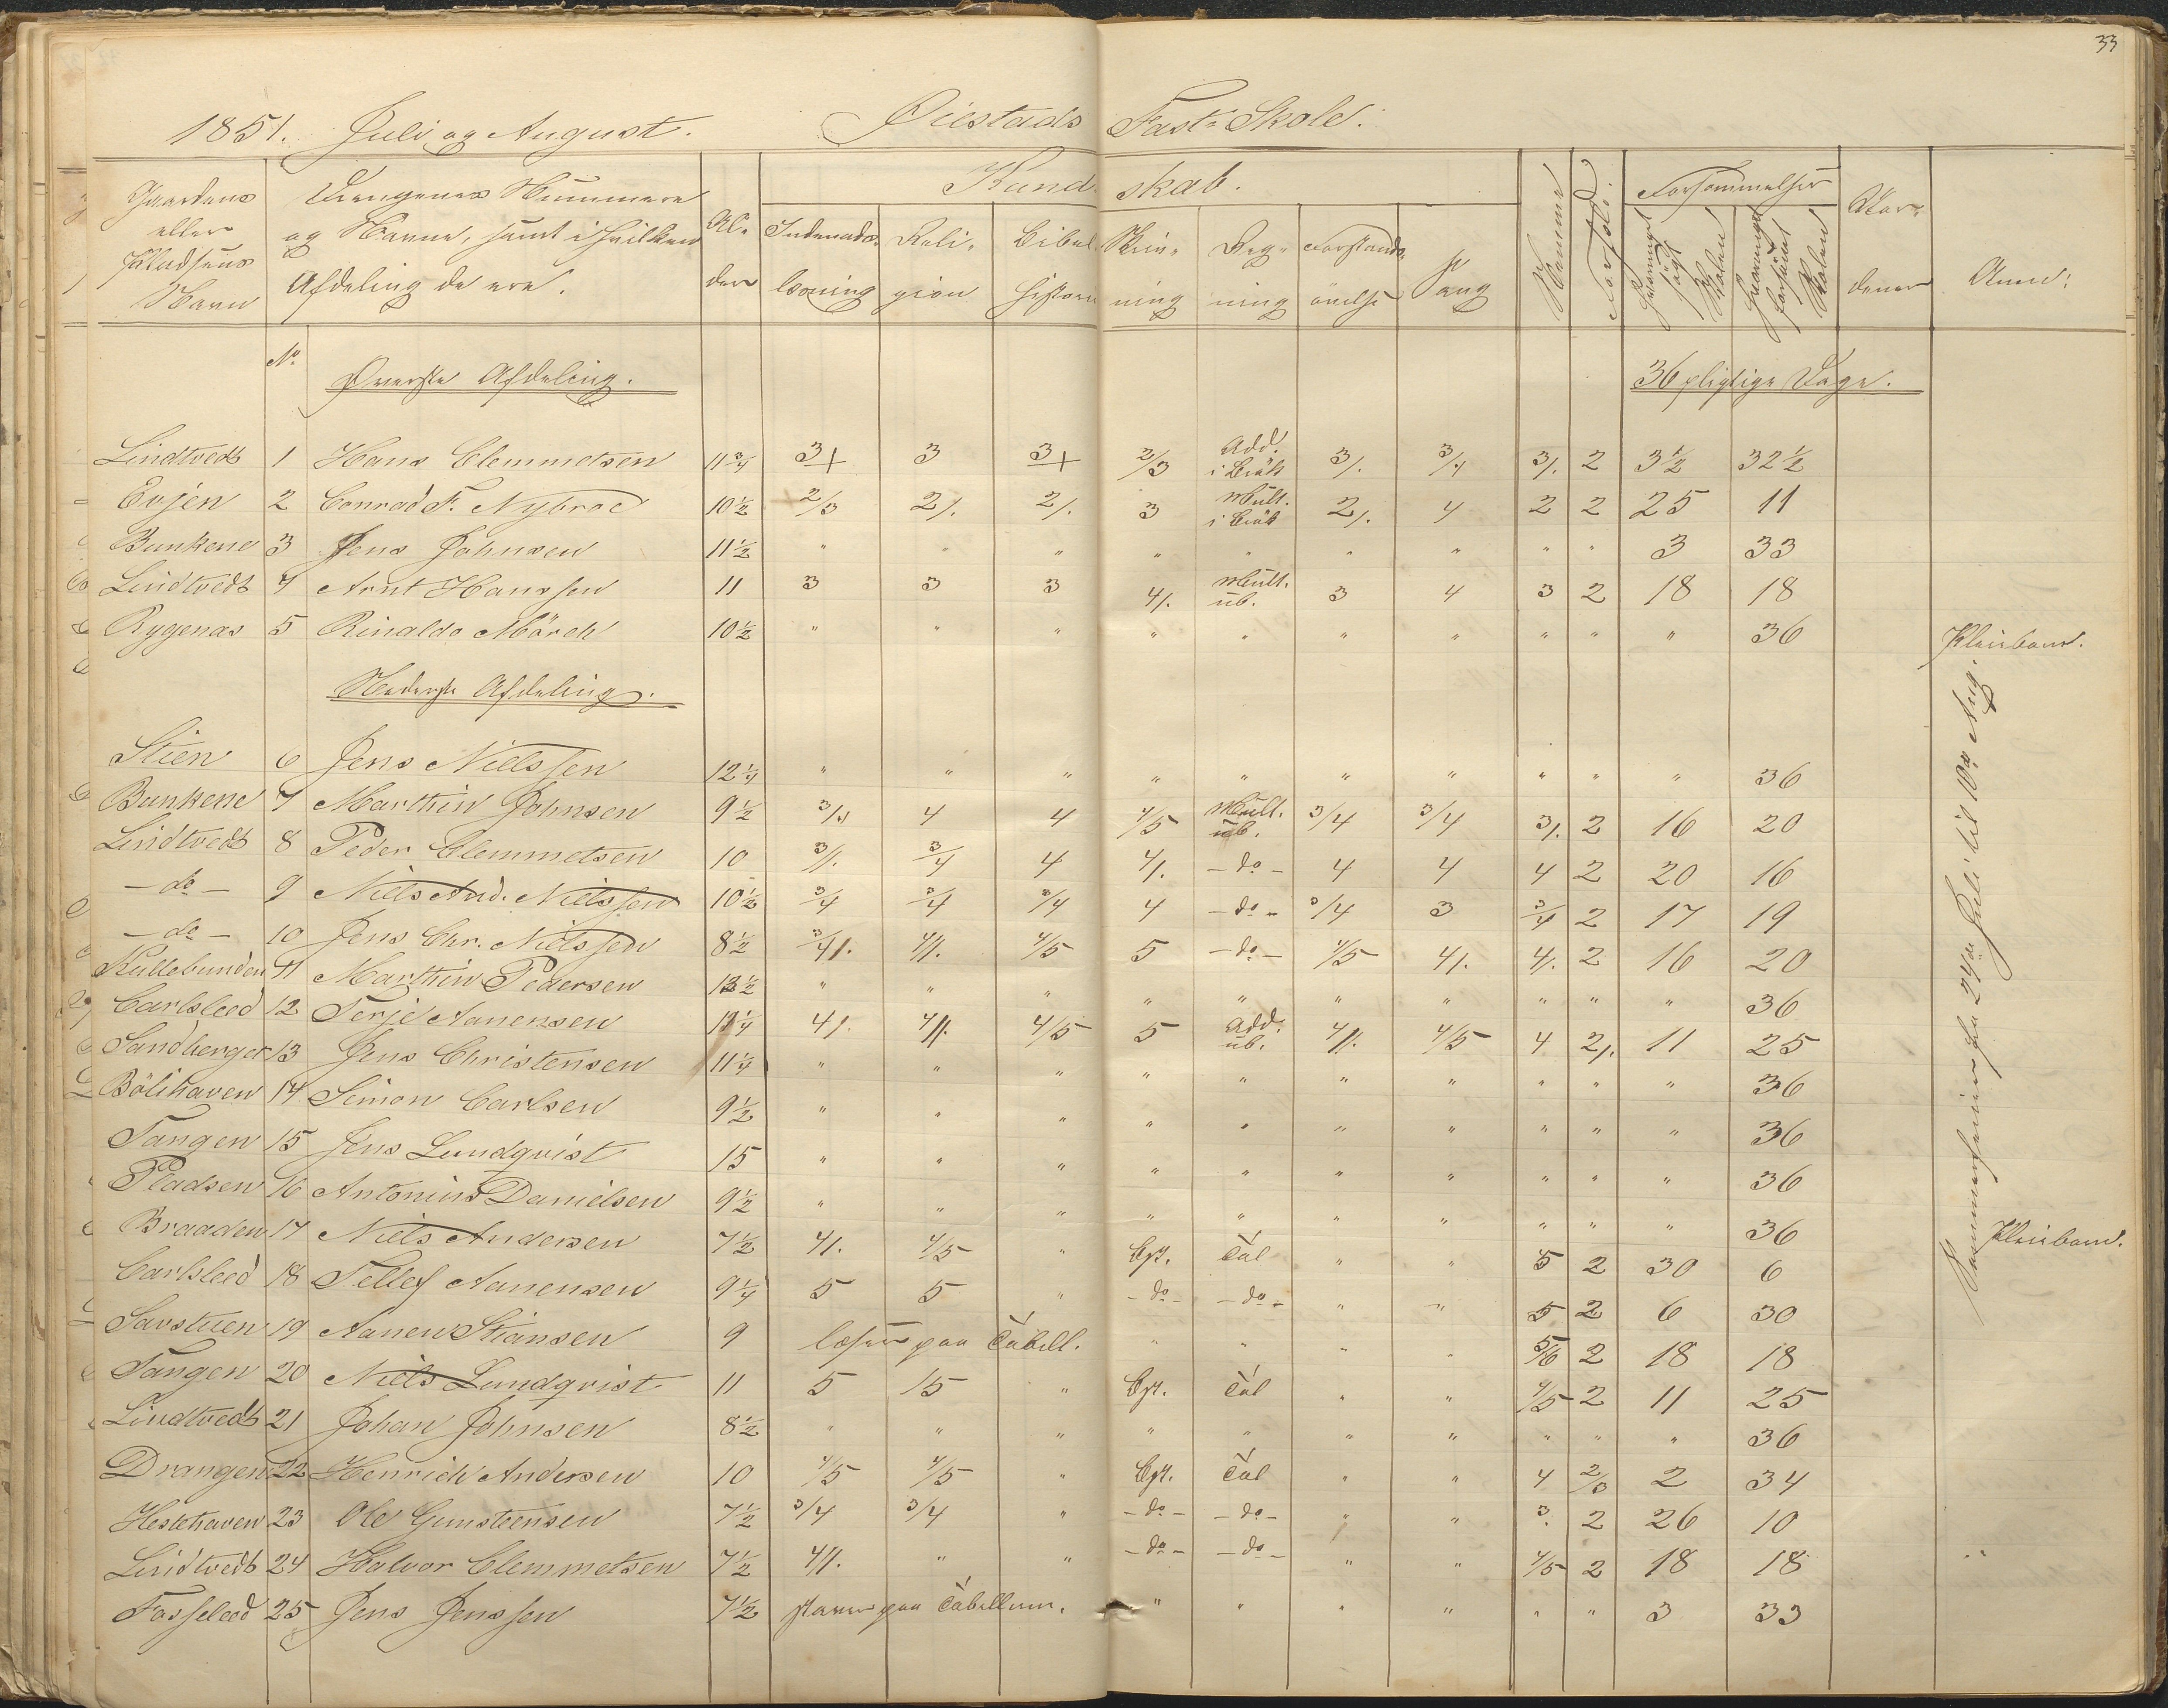 33
1851. Juli og August. Øiestads Fast-Skole.
Gaardens eller Pladsens Navn | Drengenes Nummere og Navne, samt i hvilken Afdeling de ere. | Al-der | Kundskab. | Forsømmelser | Anm:
Indenads-læsning | Reli-gion | Bibel-historie | Skriv-ning | Reg-ning | Forstands-øvelse | Sang | Nemme | Hvormeget søgt Skolen | Hvormeget forsømt Skolen
No
Øverste Afdeling. 36 pligtige Dage.
Lindtvedt 1 Hans Clemmetsen 11 3/4 3+ 3 3+ 2/3 Add. i Brök 3/. 3/4 3/. 2 3 1/2 32 1/2
Evjen 2 Conrad F. Nybroe 10 1/2 2/3 2/. 2/. 3 Mult. i Brök 2/. 4 2 2 25 11
Bunkene 3 Jens Johnsen 11 1/2 " " " " " " " " " 3 33
Lindtvedt 4 Arnt Hanssen 11 3 3 3 4/. Mult. ub. 3 4 3 2 18 18
Rygenæs 5 Rinaldo Mörch 10 1/2 " " " " " " " " " " 36
Nederste Afdeling.
Stien 6 Jens Nielssen 12 1/4 " " " " " " " " " " 36
Bunkene 7 Marthin Johnsen 9 1/2 3/4 4 4 4/5 Mult. ub. 3/4 3/4 3/. 2 16 20
Lindtvedt 8 Peder Clemmetsen 10 3/. 3/4 4 4/. - do - 4 4 4 2 20 16
- do - 9 Niels And. Nielssen 10 1/2 3/4 3/4 3/4 4 - do - 3/4 3 3/4 2 17 19
- do - 10 Jens Chr. Nielssen 8 1/2 3/4/. 4/. 4/5 5 - do - 4/5 4/. 4/. 2 16 20
Kullebunden 11 Marthin Pedersen 13 1/2 " " " " " " " " " " 36
Carlsleed 12 Terje Aanensen 11 1/4 4/. 4/. 4/5 5 Add. ub. 4/. 4/5 4 2/. 11 25
Sandberget 13 Jens Christensen 11 1/4 " " " " " " " " " " 36
Bölihaven 14 Simon Carlsen 9 1/2 " " " " " " " " " " 36
Tangen 15 Jens Lundqvist 15 " " " " " " " " " " 36
Pladsen 16 Antonius Danielsen 9 1/2 " " " " " " " " " " 36
Braaden 17 Niels Andersen 7 1/2 4/. 4/5 " Bgst. Tal " " 5 2 30 6
Carlsleed 18 Tellef Aanensen 9 1/4 5 5 " - do - - do - " " 5 2 6 30
Savstuen 19 Aanen Stiansen 9 læser paa Tabell. " " " " 5/6 2 18 18
Tangen 20 Niels Lundqvist 11 5 15 " Bgst. Tal " " 4/5 2 11 25
Lindtvedt 21 Johan Johnsen 8 1/2 " " " " " " " " " " 36
Drangen 22 Henrich Andersen 10 4/5 4/5 " Bgst. Tal " " 4 2/3 2 34
Hestehaven 23 Ole Gunsteensen 7 1/2 3/4 3/4 " - do - - do - " " 3. 2 26 10
Lindtvedt 24 Halvor Clemmetsen 7 1/2 4/. " " - do - - do - " " 4/5 2 18 18
Fosseleed 25 Jens Jenssen 7 1/2 staver paa Tabellen. " " " " " " 3 33